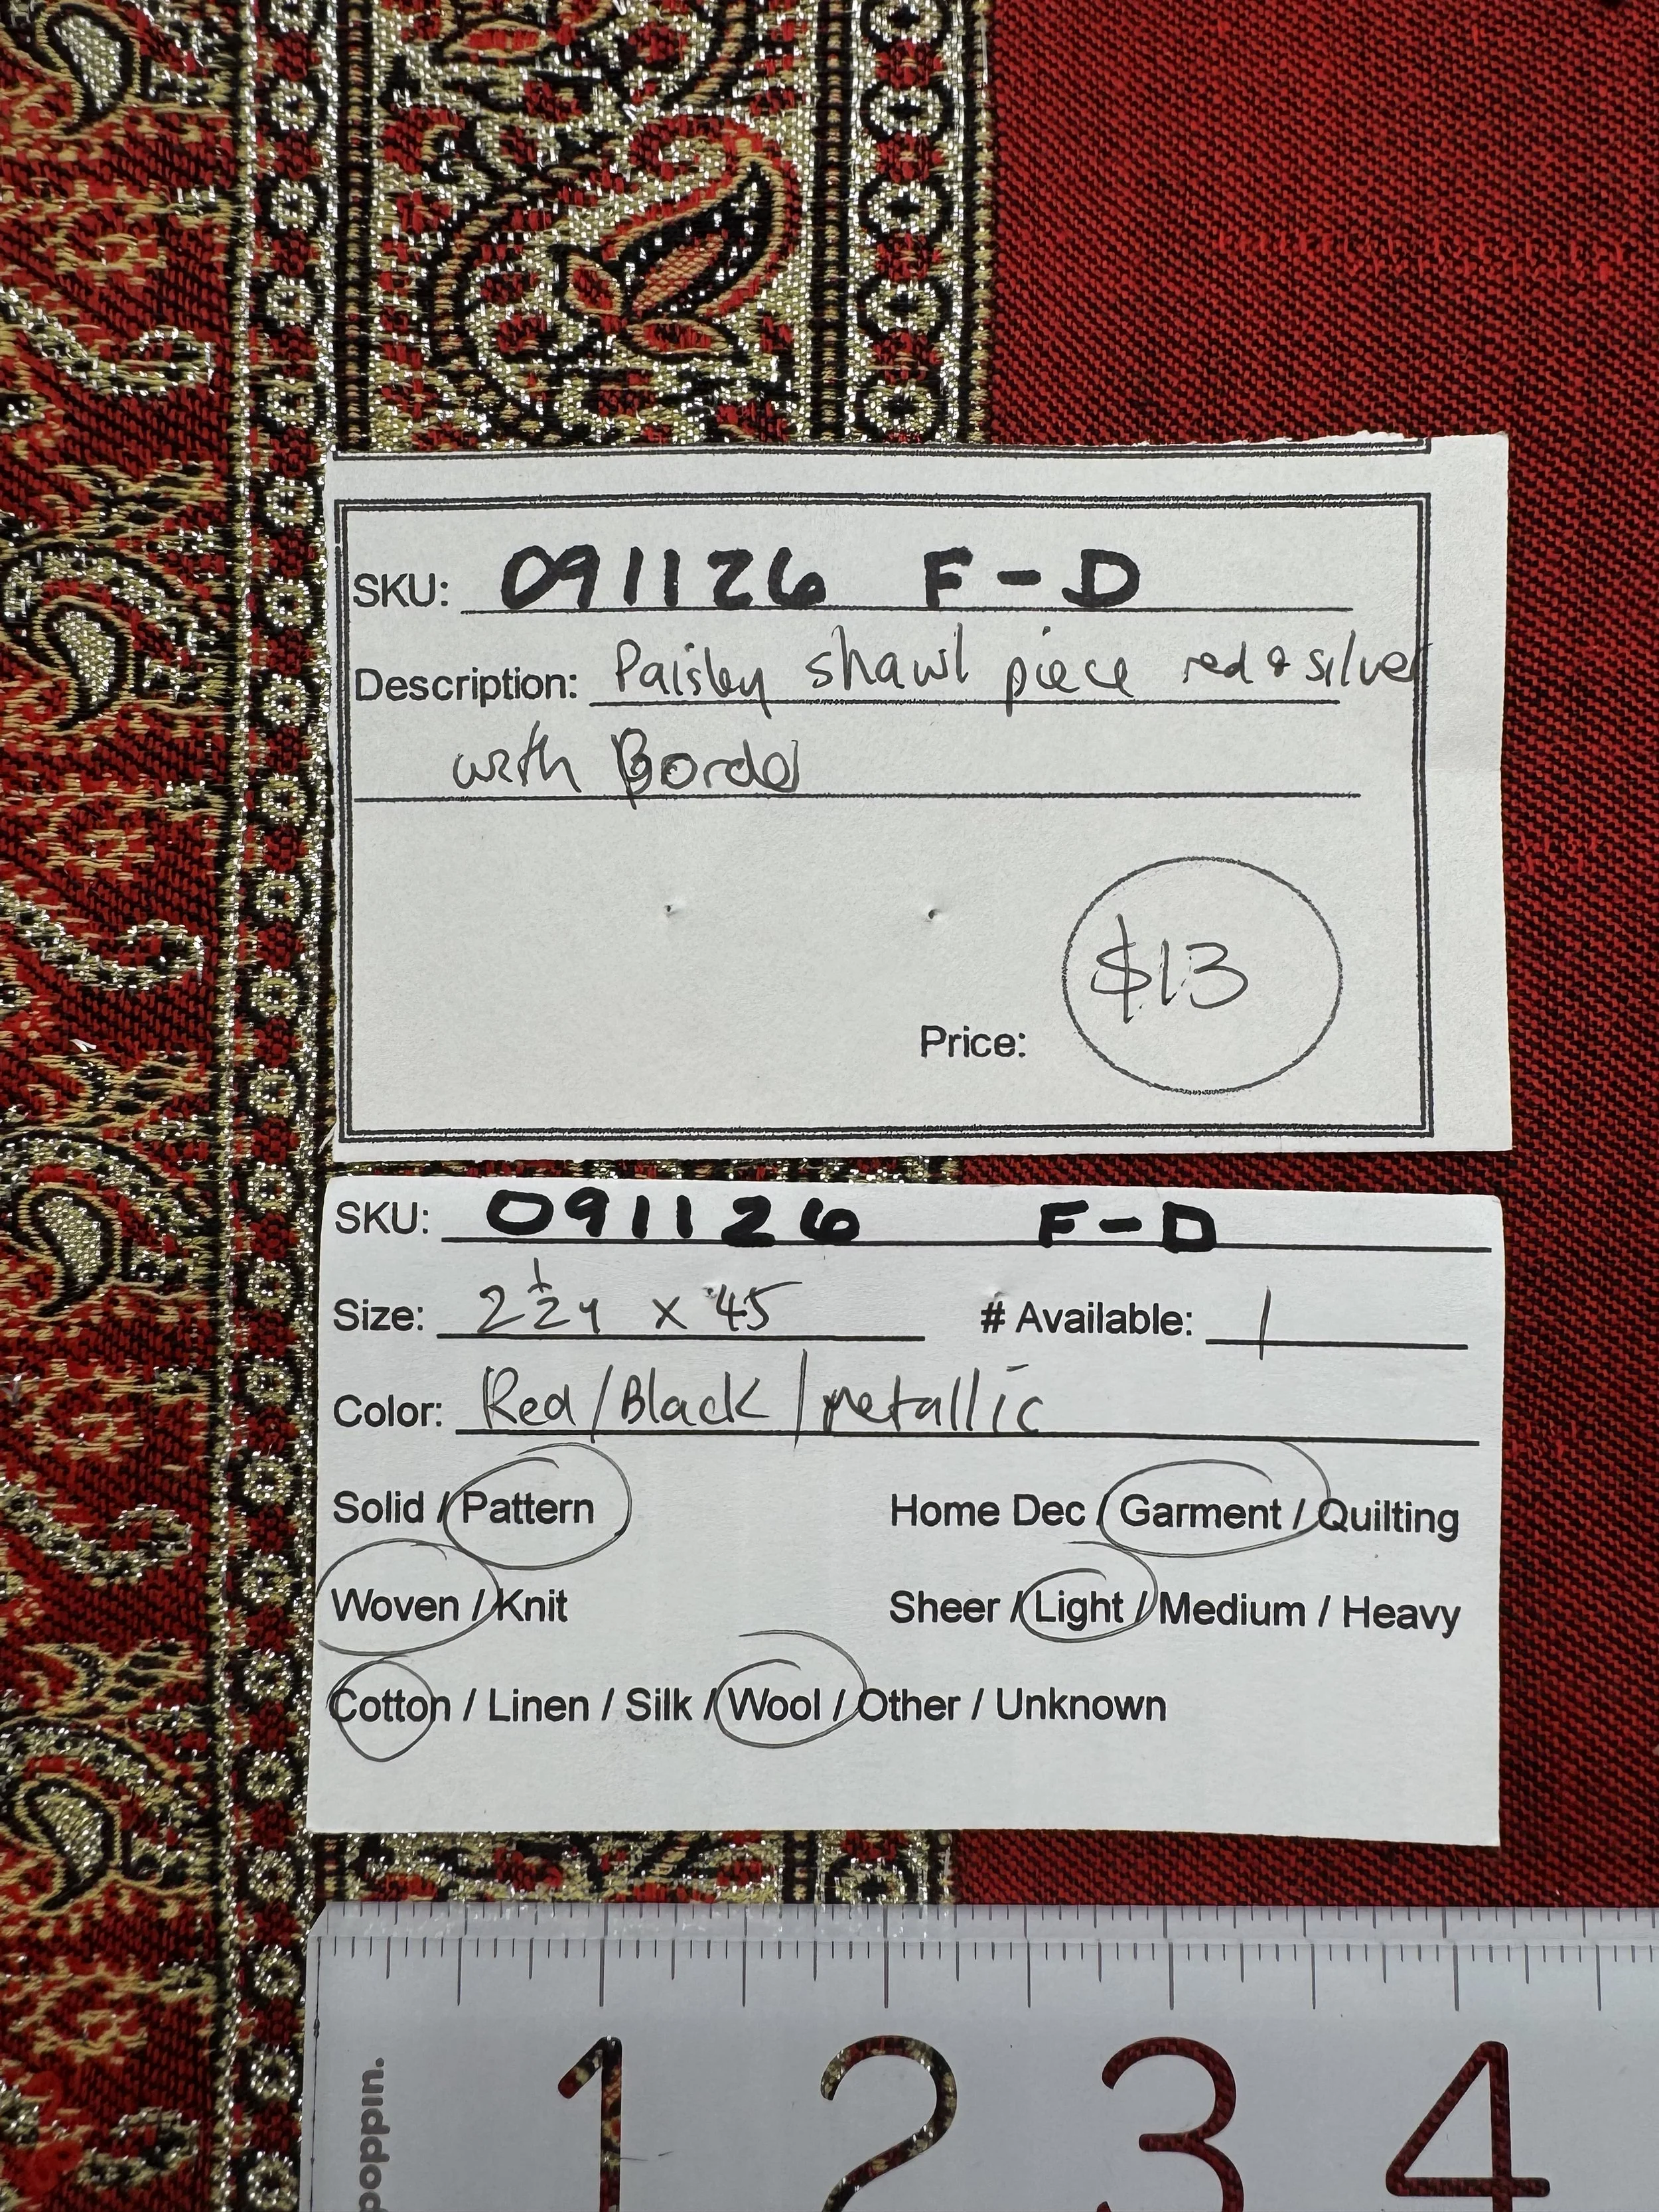 SKU: 091126 F-D
Description: Paisley shawl piece red & silver
with Border
$13
Price:
SKU: 091126 F-D
Size: 2 1/2 y x 45 # Available: 1
Color: Red/Black/metallic
Solid / Pattern Home Dec / Garment / Quilting
Woven / Knit Sheer / Light / Medium / Heavy
Cotton / Linen / Silk / Wool / Other / Unknown
1 2 3 4
poppin.